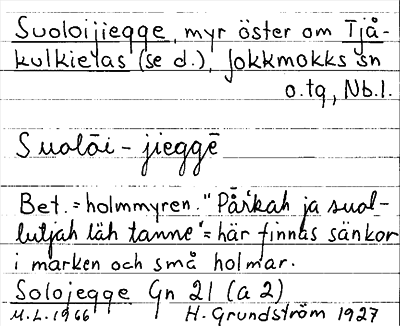 Suoloijiegge, myr öster om Tjå-
kulkielas (se d.), Jokkmokks sn
o. tg, Nb. l.
Sualāi - jieggē
Bet. = holmmyren. "Pārkah ja sual-
lutjah läh tanne" = här finnas sänkor
i marken och små holmar.
Solojegge Gn 21 (a 2)
M.L. 1966 H. Grundström 1927